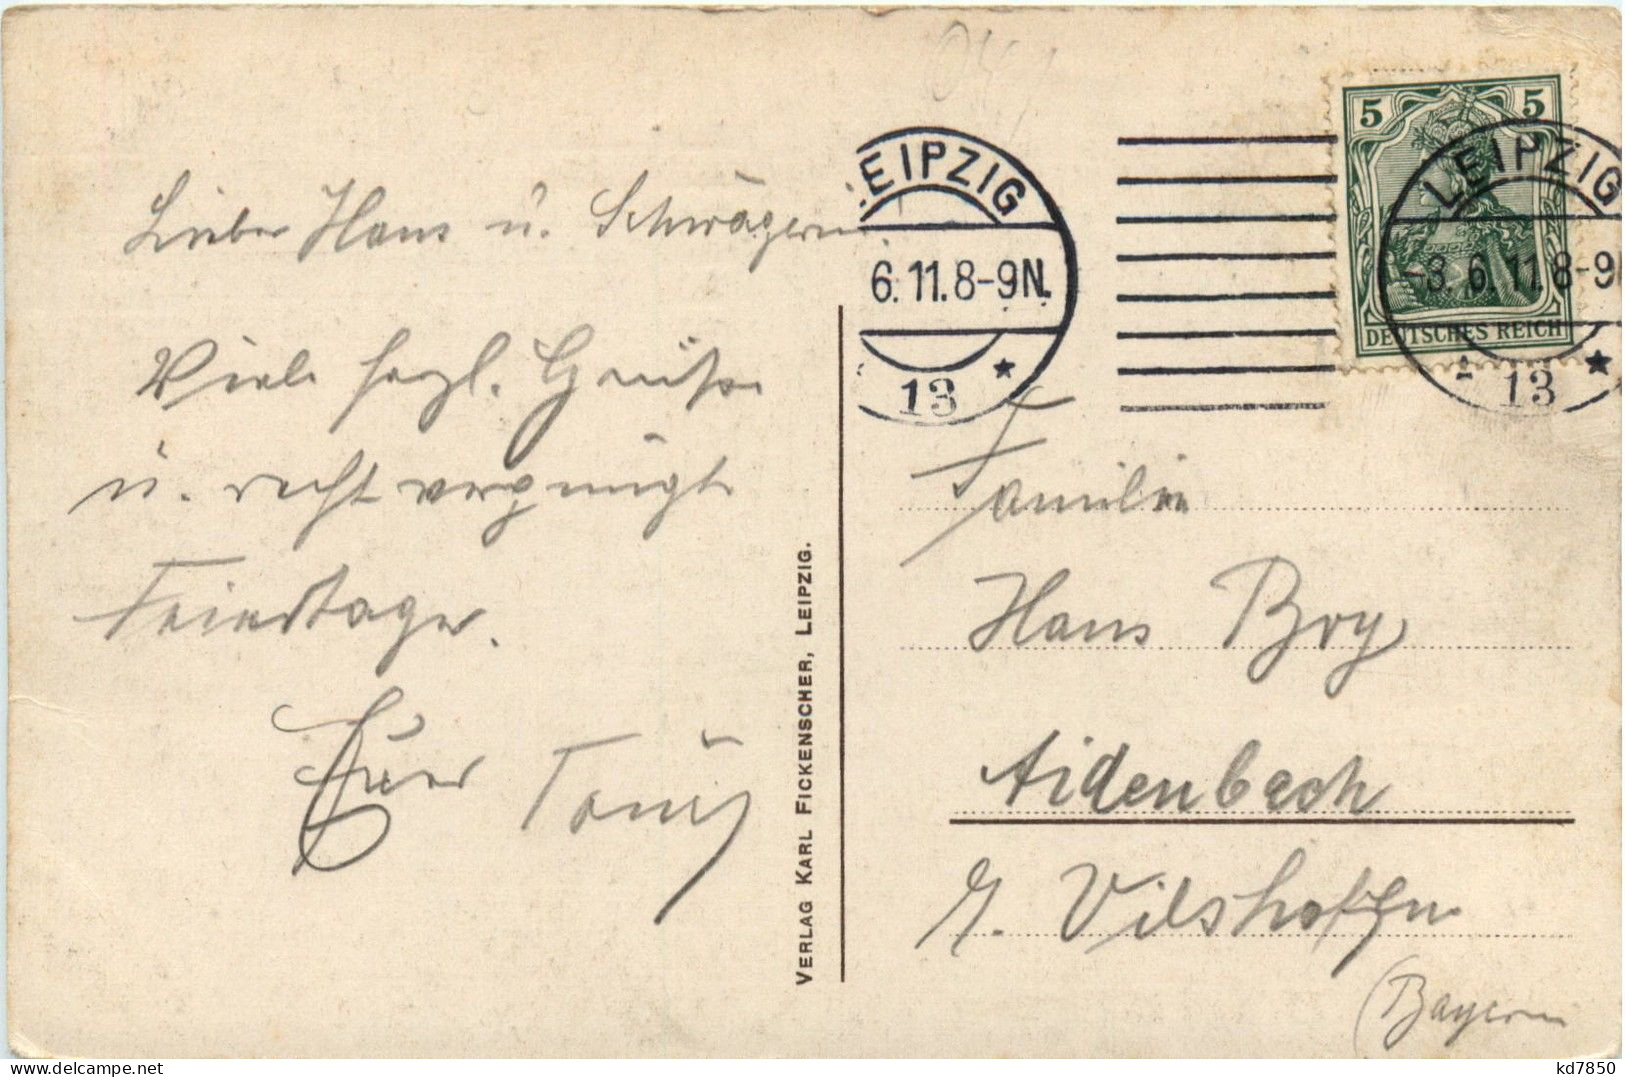 Lieber Hans u. Schwägerin.
Viele herzl. Grüße
u. recht vergnügte
Feiertage.
Euer Toni
VERLAG KARL FICKENSCHER, LEIPZIG.
LEIPZIG
6.11.8-9N.
13 *
5 5
DEUTSCHES REICH
LEIPZIG
-3.6.11.8-9
13 *
Familie
Hans Bry
Aidenbach
b. Vilshofen
(Bayern
kd7850